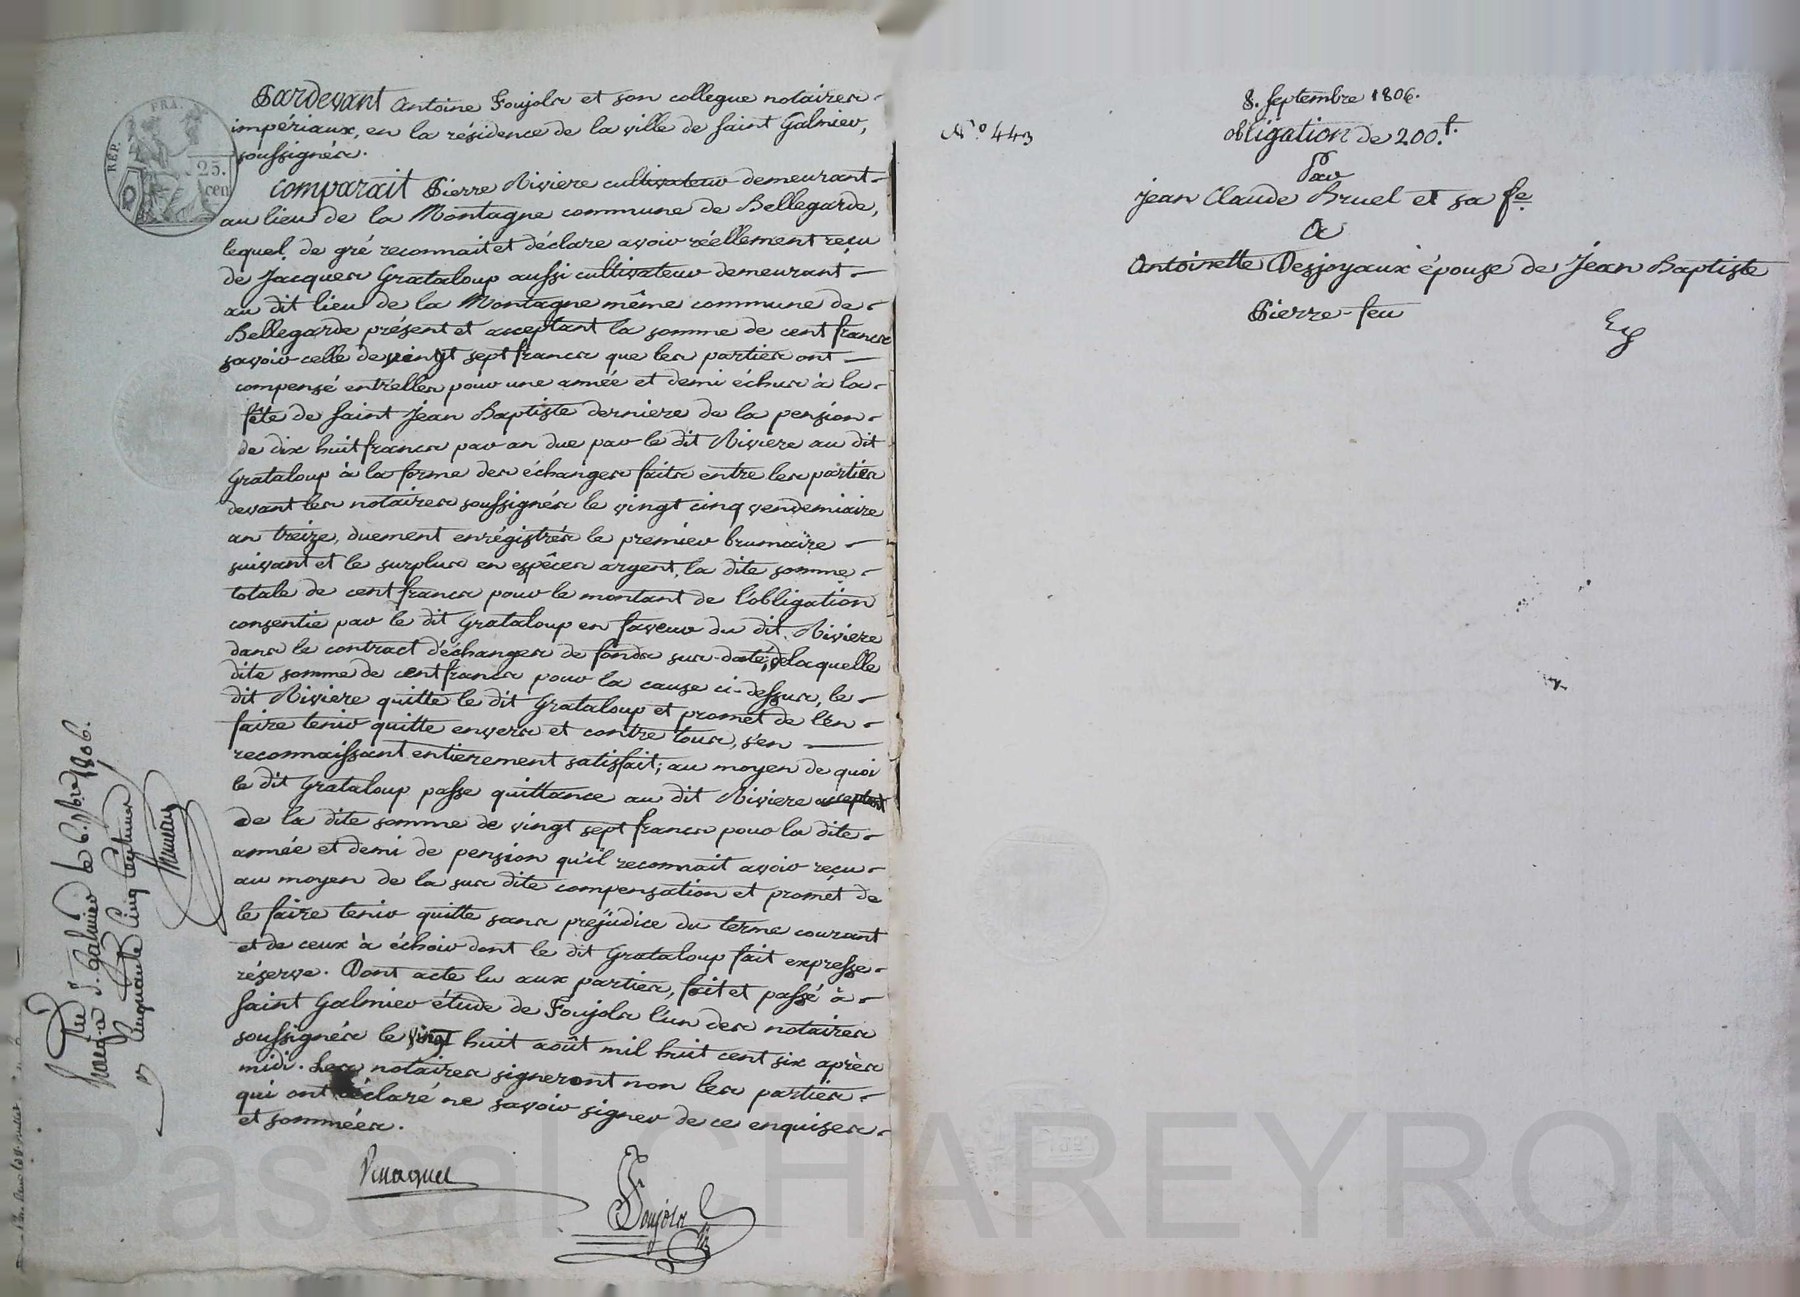 Pardevant Antoine Foujols et son collegue notaires
impériaux, en la résidence de la ville de saint Galmier,
soussignés.
comparait Pierre Riviere cultivateur demeurant
au lieu de la Montagne commune de Bellegarde,
lequel, de gré reconnait et déclare avoir réellement reçu
de Jacques Grataloup aussi cultivateur demeurant
au dit lieu de la Montagne même commune de
Bellegarde présent et acceptant la somme de cent francs
savoir celle de vingt sept francs que les parties ont
compensé entr'elles pour une année et demi échus à la
fête de saint Jéan Baptiste derniere de la pension
de dix huit francs par an due par le dit Riviere au dit
Grataloup à la forme des échanges faits entre les parties
devant les notaires soussignés le vingt cinq vendemiaire
an treize, duement enrégistrés le premier brumaire
suivant et le surplus en espèces argent, la dite somme
totale de cent francs pour le montant de l'obligation
consentie par le dit Grataloup en faveur du dit Riviere
dans le contract d'échanges de fonds sus-daté, de laquelle
dite somme de cent francs pour la cause ci-dessus, le
dit Riviere quitte le dit Grataloup et promet de l'en
faire tenir quitte envers et contre tous, s'en
reconnaissant entierement satisfait; au moyen de quoi
le dit Grataloup passe quittance au dit Riviere acceptant
de la dite somme de vingt sept francs pour la dite
année et demi de pension qu'il reconnait avoir reçu
au moyen de la sus dite compensation et promét de
le faire tenir quitte sans préjudice du terme courant
et de ceux à échoir dont le dit Grataloup fait expresse
réserve. Dont acte lu aux parties, fait et passé à
saint Galmier étude de Foujols l'un des notaires
soussignés le vingt huit août mil huit cent six après
midi. Les notaires signeront non les parties
qui ont déclaré ne savoir signer de ce enquises
et sommées.
Foujols
RÉP. FRA.
25.
cen
S. Galmier le 6. 7bre 1806.
Cinquante Cinq Centimes
8. septembre 1806.
N.º 443
obligation de 200.f.
Par
jean Claude Bruel et sa fe.
A
Antoinette Desjoyaux épouse de Jean Baptiste
Pierre-feu
Pascal CHAREYRON